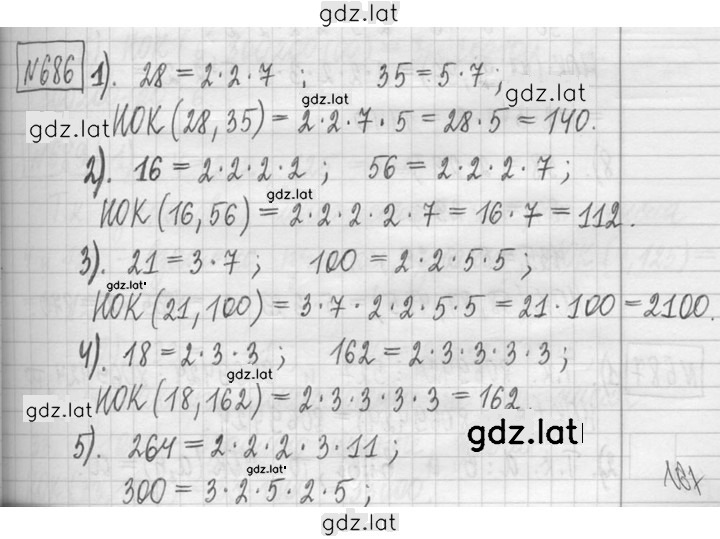 gdz.lat
№686 1). 28 = 2·2·7 ; 35 = 5·7 ;
gdz.lat
gdz.lat
gdz.lat
НОК (28, 35) = 2·2·7·5 = 28·5 = 140.
2). 16 = 2·2·2·2 ; 56 = 2·2·2·7 ;
gdz.lat
НОК (16, 56) = 2·2·2·2·7 = 16·7 = 112.
3). 21 = 3·7 ; 100 = 2·2·5·5 ;
gdz.lat
НОК (21, 100) = 3·7·2·2·5·5 = 21·100 = 2100.
4). 18 = 2·3·3 ; 162 = 2·3·3·3·3 ;
gdz.lat
gdz.lat
НОК (18, 162) = 2·3·3·3·3 = 162.
5). 264 = 2·2·2·3·11 ;
gdz.lat
gdz.lat
300 = 3·2·5·2·5 ;
187
gdz.lat